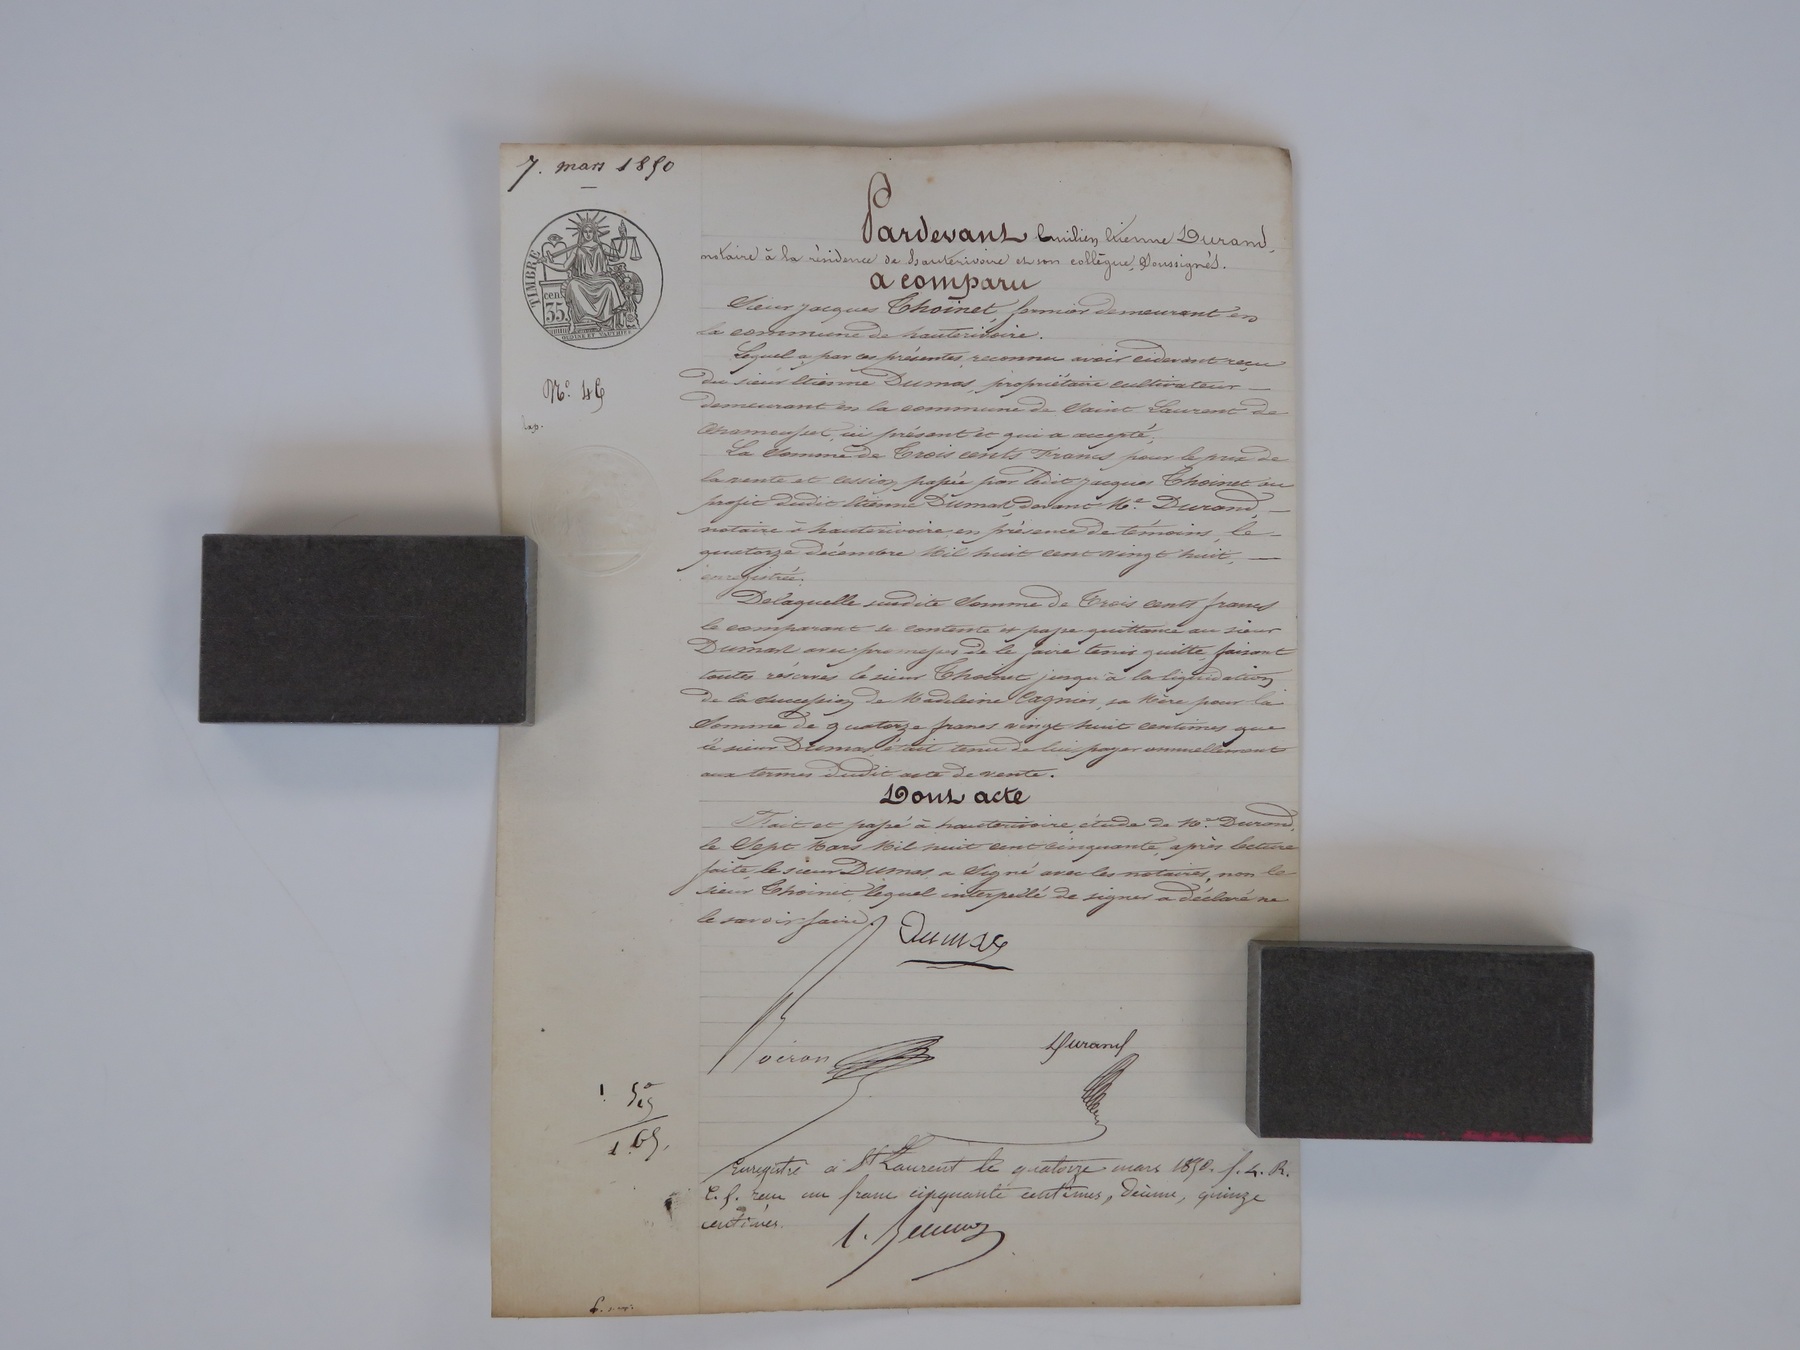 7. mars 1850
TIMBRE
cen.
35
N.° 46
Pardevant Emilien Etienne Durand,
notaire à la résidence de hauterivoire et son collègue, Soussignés.
a comparu
Sieur jacques Thoinet, fermier demeurant en
la commune de hauterivoire.
Lequel a par ces présentes, reconnu avoir cidevant reçu
du sieur Etienne Dumas, propriétaire cultivateur
demeurant en la commune de Saint Laurent de
Chamousset, ici présent et qui a accepté,
La Somme de Trois cents Francs pour le prix de
la vente et cession passée par ledit jacques Thoinet au
profit dudit Etienne Dumas, devant Me. Durand,
notaire à hauterivoire, en présence de témoins, le
quatorze décembre Mil huit cent vingt huit,
enregistrée.
Delaquelle susdite Somme de Trois cents francs
le comparant se contente et passe quittance au sieur
Dumas avec promesses de le faire tenir quitte, faisant
toutes réserves le sieur Thoinet jusqu'à la liquidation
de la succession de Madeleine Cagnin, sa Mère pour la
Somme de quatorze francs vingt huit centimes que
le sieur Dumas était tenu de lui payer annuellement
aux termes dudit acte de vente.
Dont acte
Fait et passé à hauterivoire, étude de Me. Durand,
le Sept Mars Mil huit cent cinquante, après lecture
faite le sieur Dumas a Signé avec les notaires, non le
sieur Thoinet, lequel interpellé de signer a déclaré ne
le savoir faire.
Dumas
Durand
1. 50
15
1.65.
Enregistré à St Laurent le quatorze mars 1850. f. 4. R.
C. 9. reçu un franc cinquante centimes, décime, quinze
centimes.